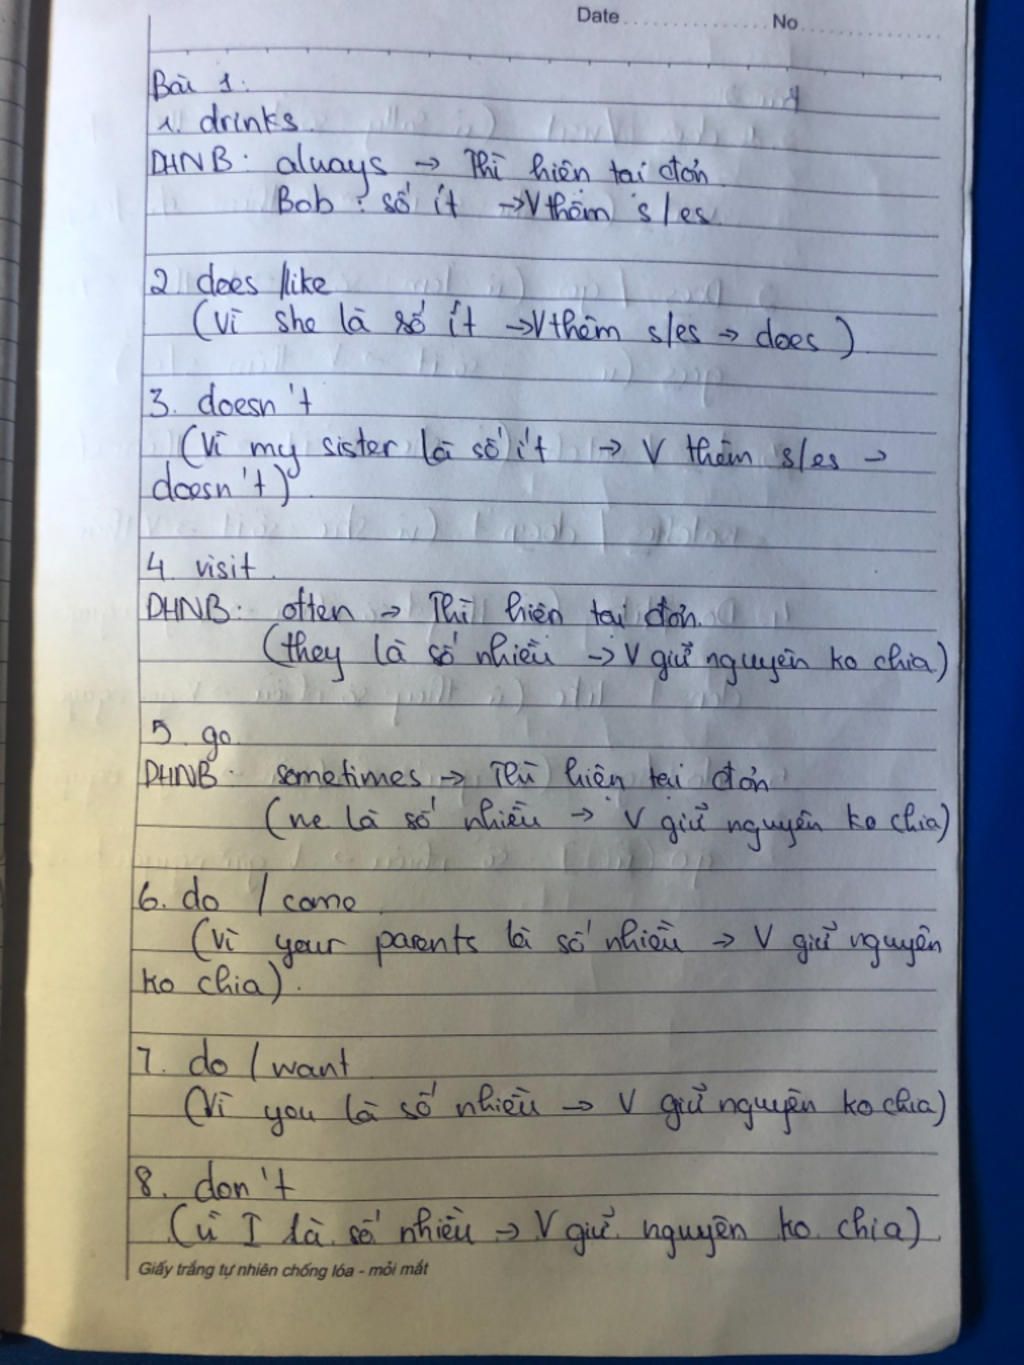 Date No
Bài 1:
1. drinks.
DHNB: always → Thì hiện tại đơn.
Bob: số ít → V thêm s/es.
2 does / like
(Vì she là số ít → V thêm s/es → does)
3. doesn't
(Vì my sister là số ít → V thêm s/es →
doesn't).
4. visit.
DHNB: often → Thì hiện tại đơn.
(they là số nhiều → V giữ nguyên ko chia)
5. go.
DHNB: sometimes → Thì hiện tại đơn
(we là số nhiều → V giữ nguyên ko chia)
6. do / come
(Vì your parents là số nhiều → V giữ nguyên
ko chia).
7. do / want
(Vì you là số nhiều → V giữ nguyên ko chia)
8. don't
(Vì I là số nhiều → V giữ nguyên ko chia).
Giấy trắng tự nhiên chống lóa - mỏi mắt